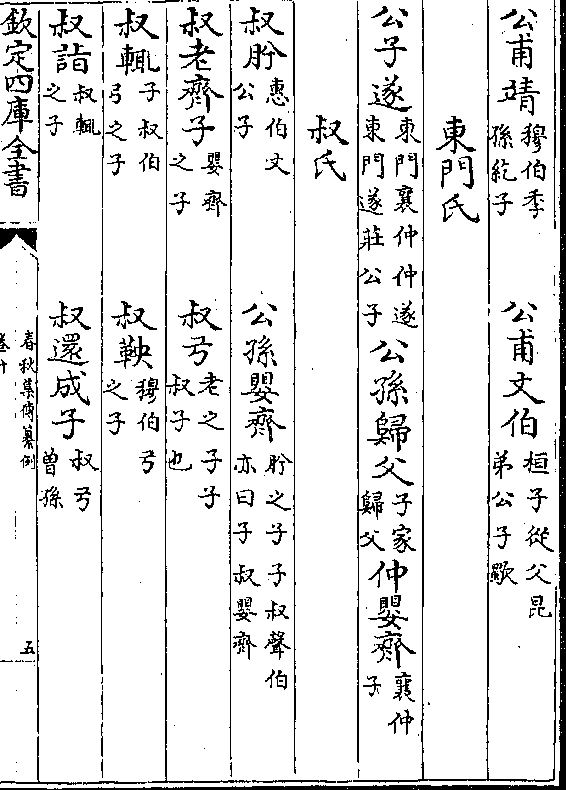 公甫靖穆伯季孫紇子 公甫文伯桓子從父昆弟公子歜
東門氏
公子遂東門襄仲仲遂東門遂莊公子 公孫歸父子家歸父 仲嬰齊襄仲子
叔氏
叔肹惠伯文公子 公孫嬰齊肹之子子叔聲伯亦曰子叔嬰齊
叔老齊子嬰齊之子 叔弓老之子子叔子也
叔輒子叔伯弓之子 叔鞅穆伯弓之子
叔詣叔輒之子 叔還成子叔弓曾孫
欽定四庫全書 春秋集傳纂例 卷十 五